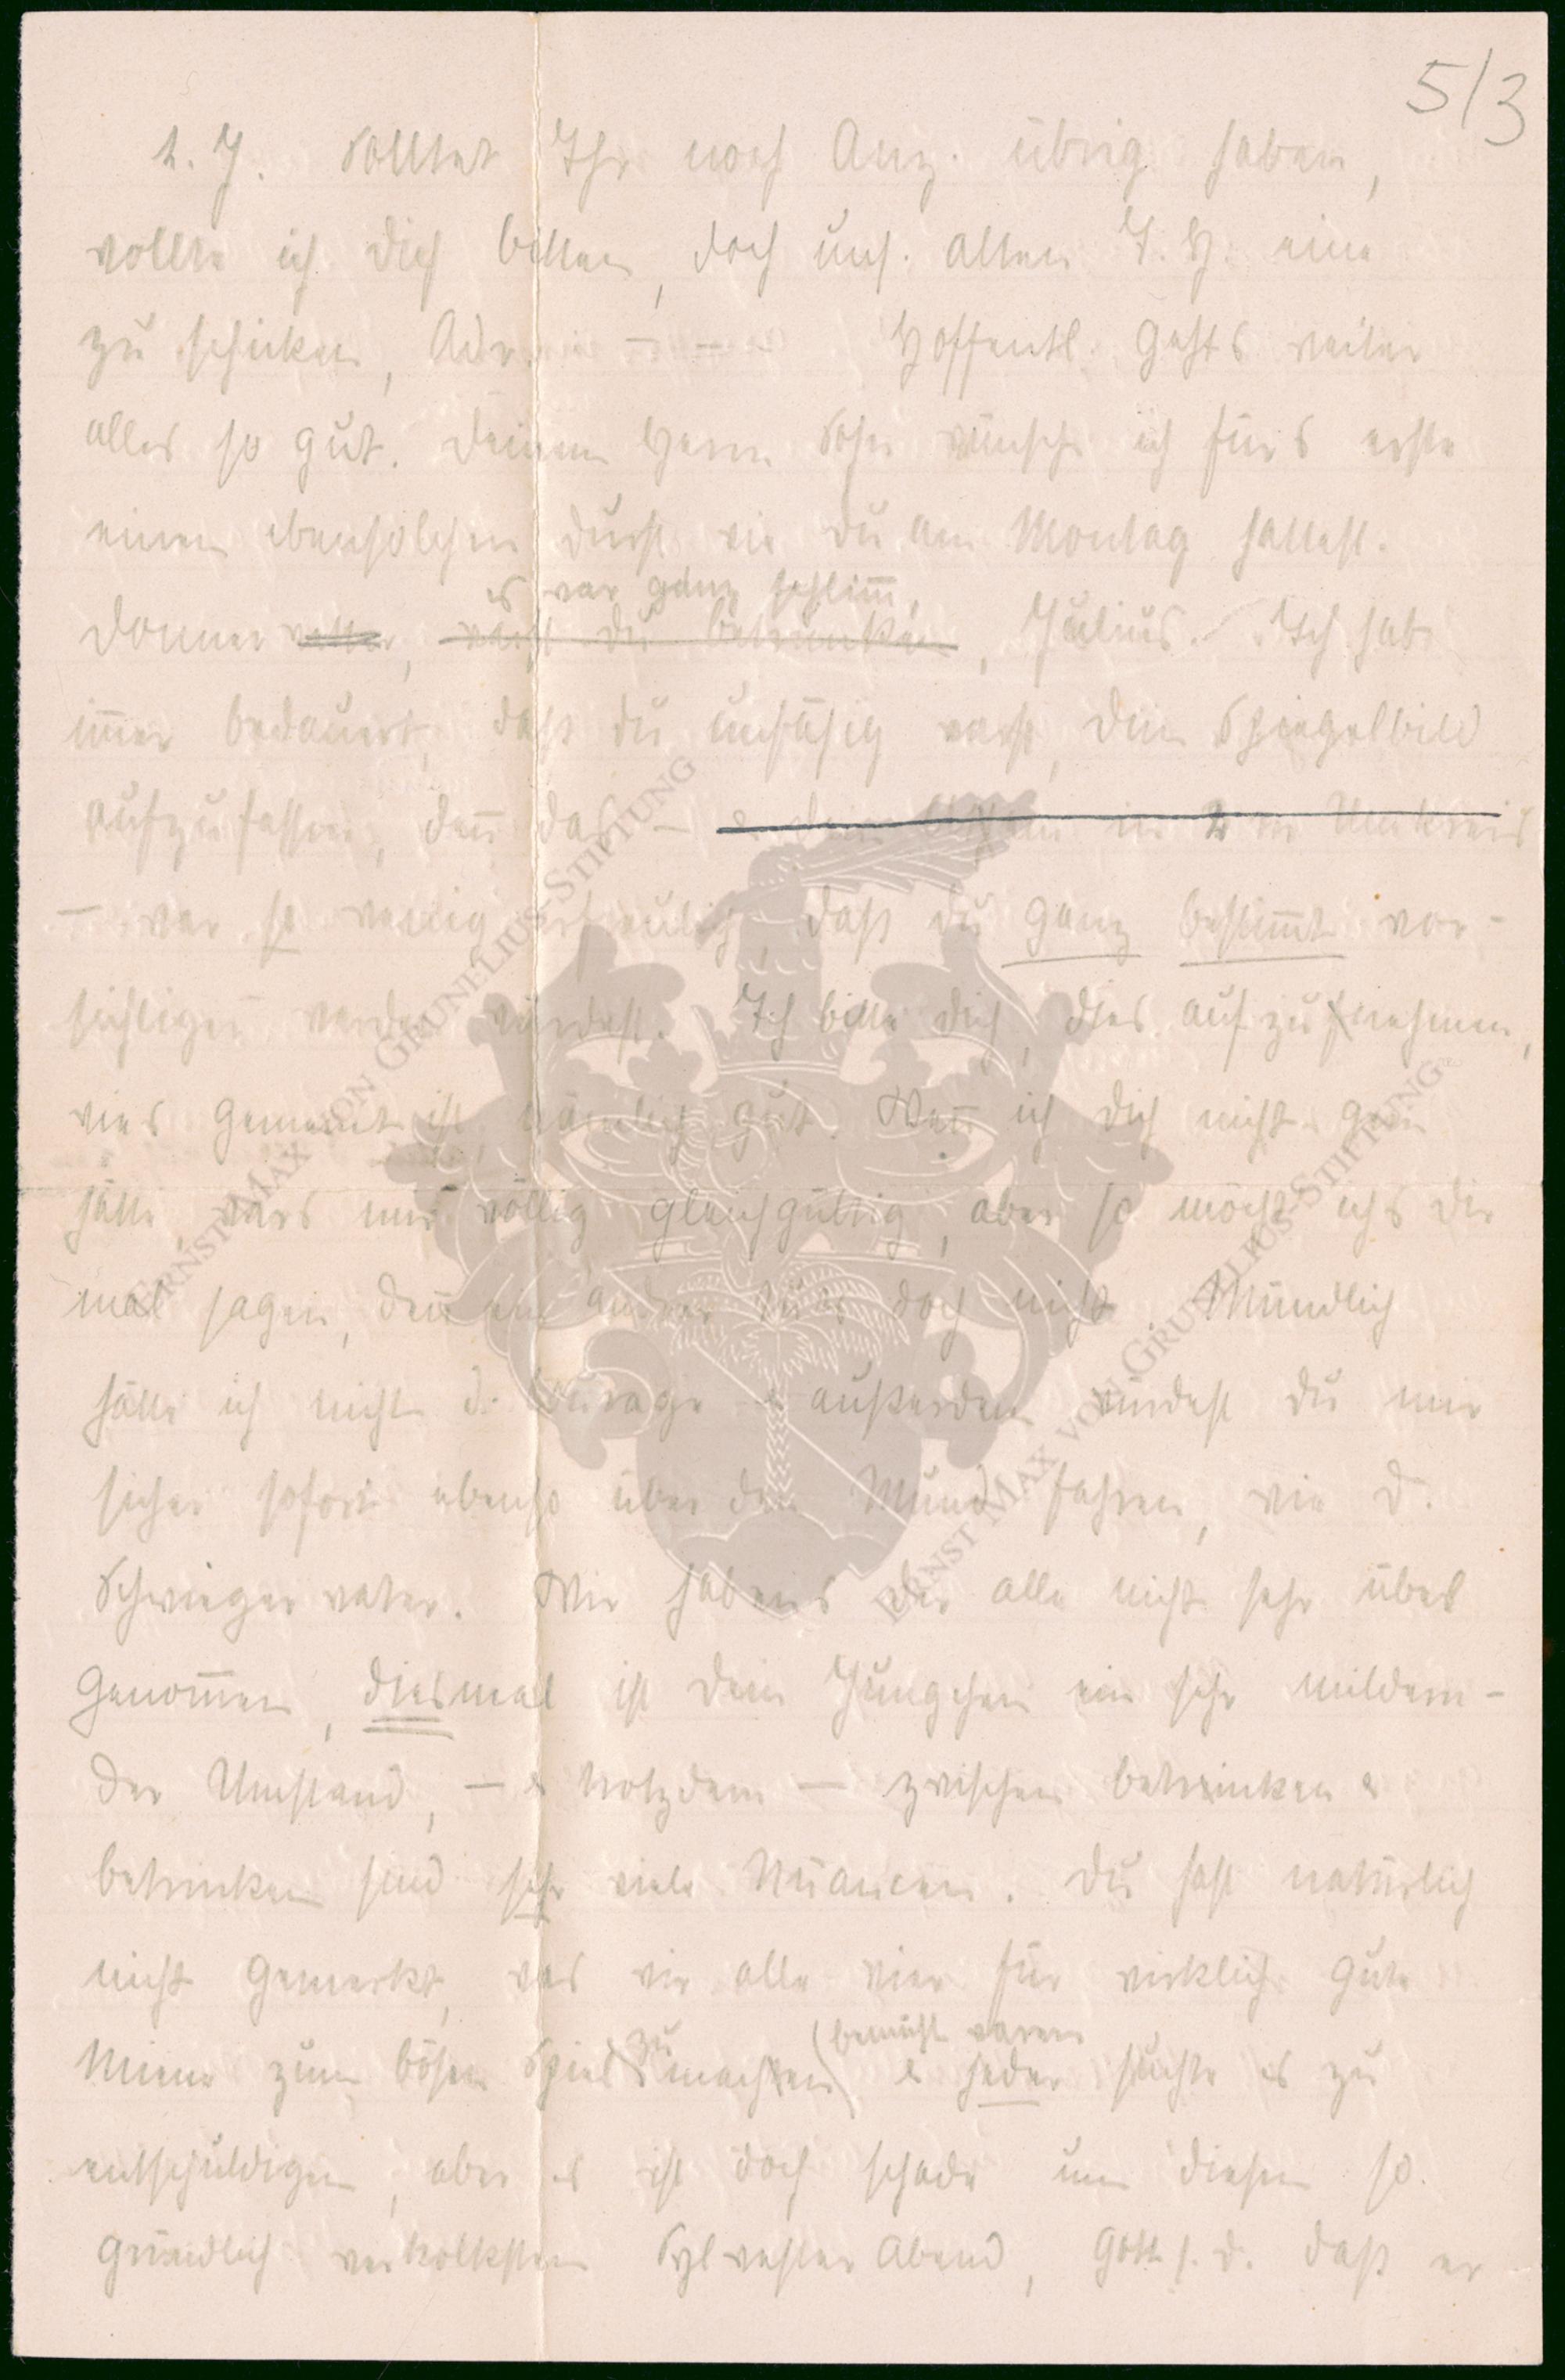 5/3
l. J. Solltet Ihr noch Anz. übrig haben,
wollte ich dich bitten, doch uns. alten F. H. eine
zu schicken, Adr. – – – Hoffentl. gehts weiter
alles so gut. Deinem Herrn Sohn wünsche ich fürs erste
einen ebensolchen Durst wie du am Montag hattest.
es war ganz schlimm,
Donnerwetter, warst du betrunken, Julius. Ich hab
im̄er bedauert, daß du unfähig warst, dein Spiegelbild
aufzufassen, den̄ das – & dein in 2 m Umkreis
– war so wenig erfreulich, daß du ganz bestim̄t vor-
sichtiger werden würdest. Ich bitte dich, dies aufzunehmen,
wies gemeint ist, nämlich gut. Wen̄ ich dich nicht gern
hätte, wärs mir völlig gleichgültig, aber so möcht ichs dir
mal sagen, den̄ ein andrer tuts doch nicht. Mündlich
hätte ich nicht d. Courage & außerdem würdest du mir
sicher sofort ebenso über den Mund fahren, wie d.
Schwiegervater. Wir habens dir alle nicht sehr übel
genom̄en, diesmal ist dein Jungchen ein sehr mildern-
der Umstand, – & trotzdem – zwischen betrinken &
betrinken sind sehr viele Nüancen. Du hast natürlich
nicht gemerkt, was wir alle vier für wirklich gute
zu (bemüht waren
Miene zum bösen Spiel machen) & jeder suchte es zu
entschuldigen, aber es ist doch schade um diesen so
gründlich verkolksten Sylvester Abend, Gott s. d. daß er
ERNST MAX VON GRUNELIUS-STIFTUNG
ERNST MAX VON GRUNELIUS-STIFTUNG